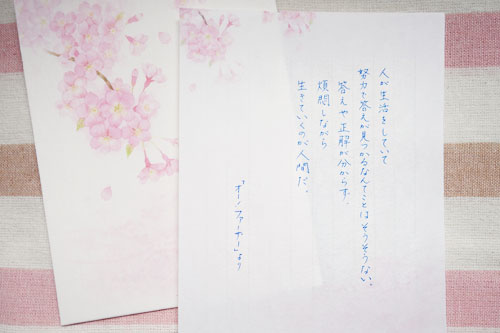 人が生活をしていて
努力で答えが見つかるなんてことはそうそうない。
答えや正解が分からず、
煩悶しながら
生きていくのが人間だ。
「オー!ファーザー」より